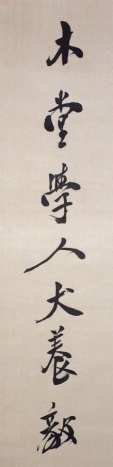 木堂學人犬養毅